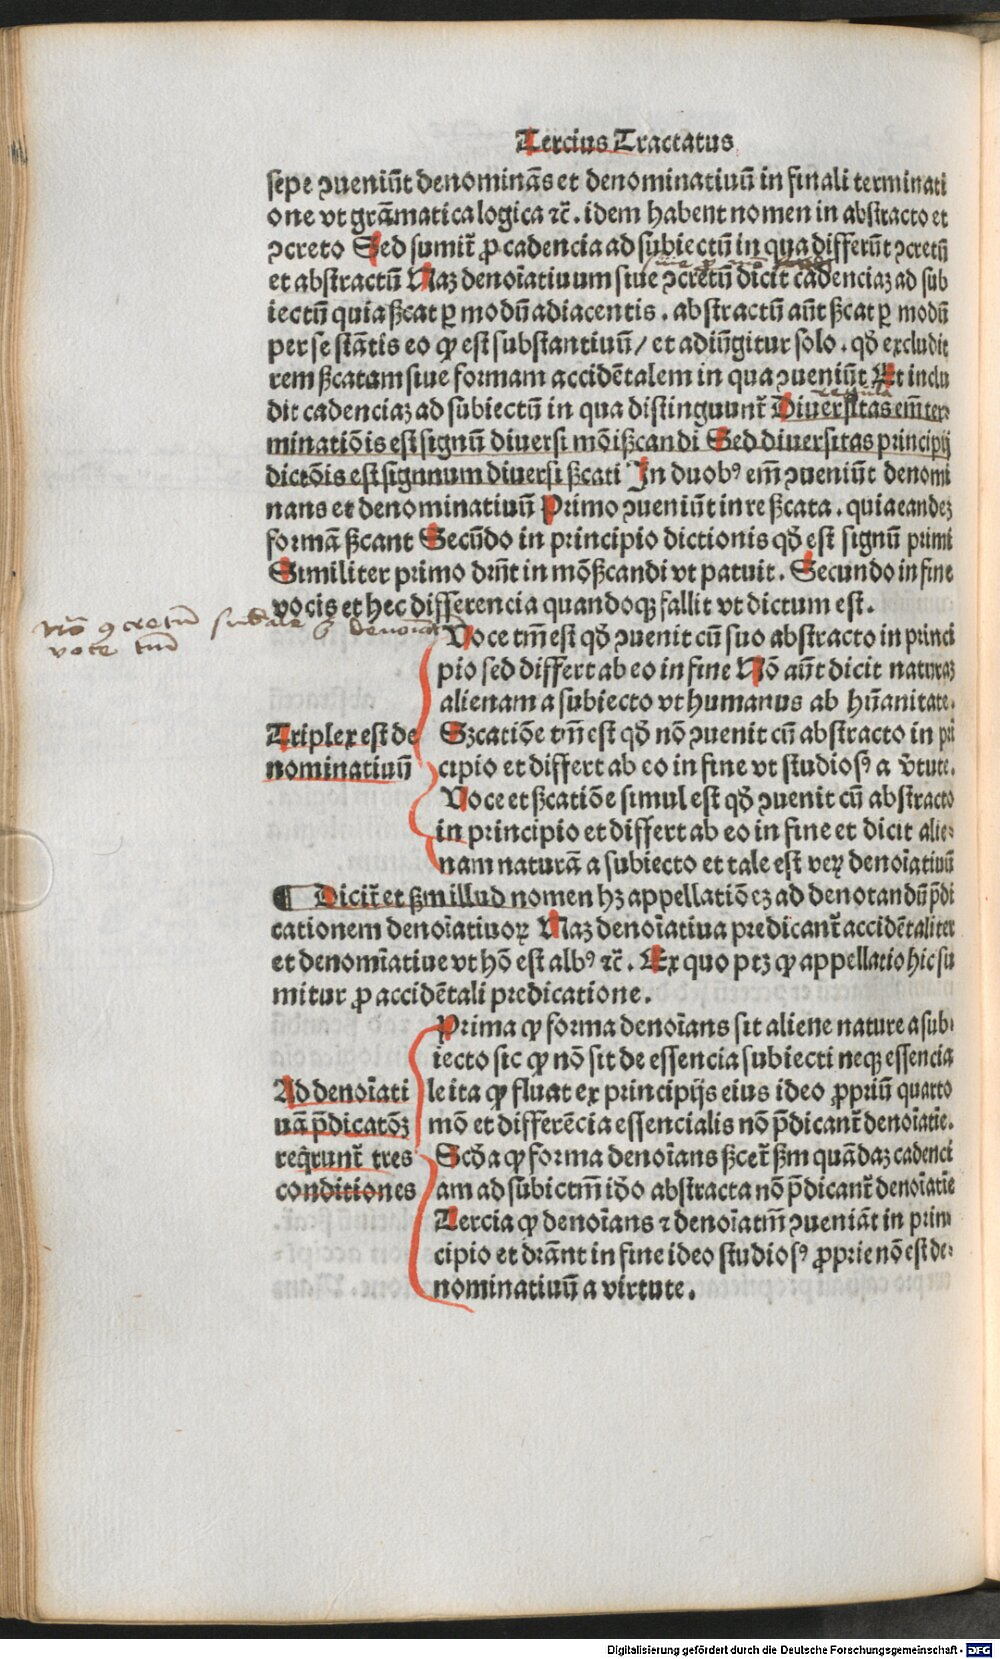 Tercius Tractatus
sepe ꝯueniūt denominās et denominatiuū in finali terminati
one vt grāmatica logica ⁊c̄. idem habent nomen in abstracto et
ꝯcreto Sed sumit᷑ ꝓ cadencia ad subiectū in qua differūt ꝯcretū
et abstractū Naꝫ denoīatiuum siue ꝯcretū dicit cadenciaꝫ ad sub
iectū quia ßcat ꝑ modū adiacentis. abstractū aūt ßcat ꝑ modū
per se stātis eo ꝙ est substantiuū/ et adiūgitur solo. qď excludit
rem ßcatam siue formam accidētalem in qua ꝯueniūt Et inclu
dit cadenciaꝫ ad subiectū in qua distinguunt᷑
regula
Diuersitas em̄ ter⸗
minatiōis est signū diuersi mōi ßcandi Sed diuersitas principij
dictōis est signnum diuersi ßcati In duobꝰ em̄ ꝯueniūt denomi
nans et denominatiuū Primo ꝯueniūt in re ßcata. quia eandeꝫ
formā ßcant Secūdo in principio dictionis qď est signū primi
Similiter primo drn̄t in mō ßcandi vt patuit. Secundo in fine
vocis et hec differencia quandoqꝫ fallit vt dictum est.
voce tm̄
Voce tm̄ est qď ꝯuenit cū suo abstracto in princi
pio sed differt ab eo in fine Nō aūt dicit naturaꝫ
alienam a subiecto vt humanus ab hūanitate.
Triplex est de
nominatiuū
Sꝫcatiōe tm̄ est qď nō ꝯuenit cū abstracto in pri
cipio et differt ab eo in fine vt studiosꝰ a v̄tute.
Voce et ßcatiōe simul est qď ꝯuenit cū abstracto
in principio et differt ab eo in fine et dicit alie⸗
nam naturā a subiecto et tale est veꝝ denoīatiuū
¶ Dicit᷑ et ßm illud nomen hꝫ appellatiōeꝫ ad denotandū p̄di
cationem denoīatiuoꝝ Naꝫ denoīatiua predicant᷑ accidētaliter
et denomīatiue vt hō est albꝰ ⁊c̄. Ex quo ptꝫ ꝙ appellatio hic su
mitur ꝓ accidētali predicatione.
Prima ꝙ forma denoīans sit aliene nature a sub⸗
iecto sic ꝙ nō sit de essencia subiecti neqꝫ essencia
Ad denoīati
uā p̄dicatōꝫ
reqͥrunt᷑ tres
conditiones
le ita ꝙ fluat ex principijs eius ideo ꝓpriū quarto
mō et differēcia essencialis nō p̄dicant᷑ denoīatie.
Scďa ꝙ forma denoīans ßcet᷑ ßm quādaꝫ cadenci
am ad subictm̄ iďo abstracta nō p̄dicant᷑ denoīatie
Tercia ꝙ denoīans ⁊ denoīatm̄ ꝯueniāt in prin
cipio et drānt in fine ideo studiosꝰ ꝓprie nō est de⸗
nominatiuū a virtute.
Digitalisierung gefördert durch die Deutsche Forschungsgemeinschaft - DFG